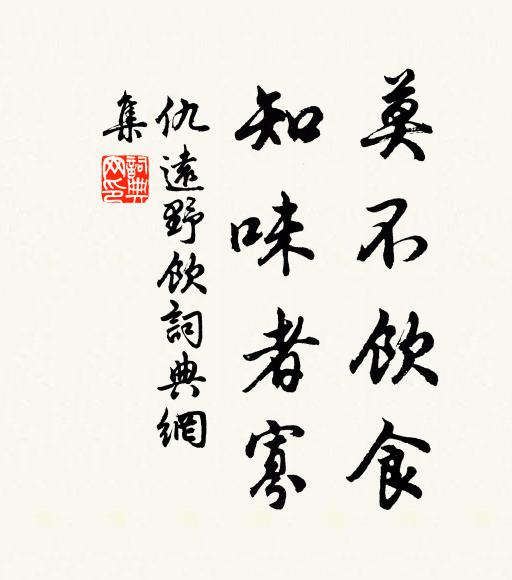 莫不飲食
知味者寡
仇遠野飲詞典網
集
詞典網印